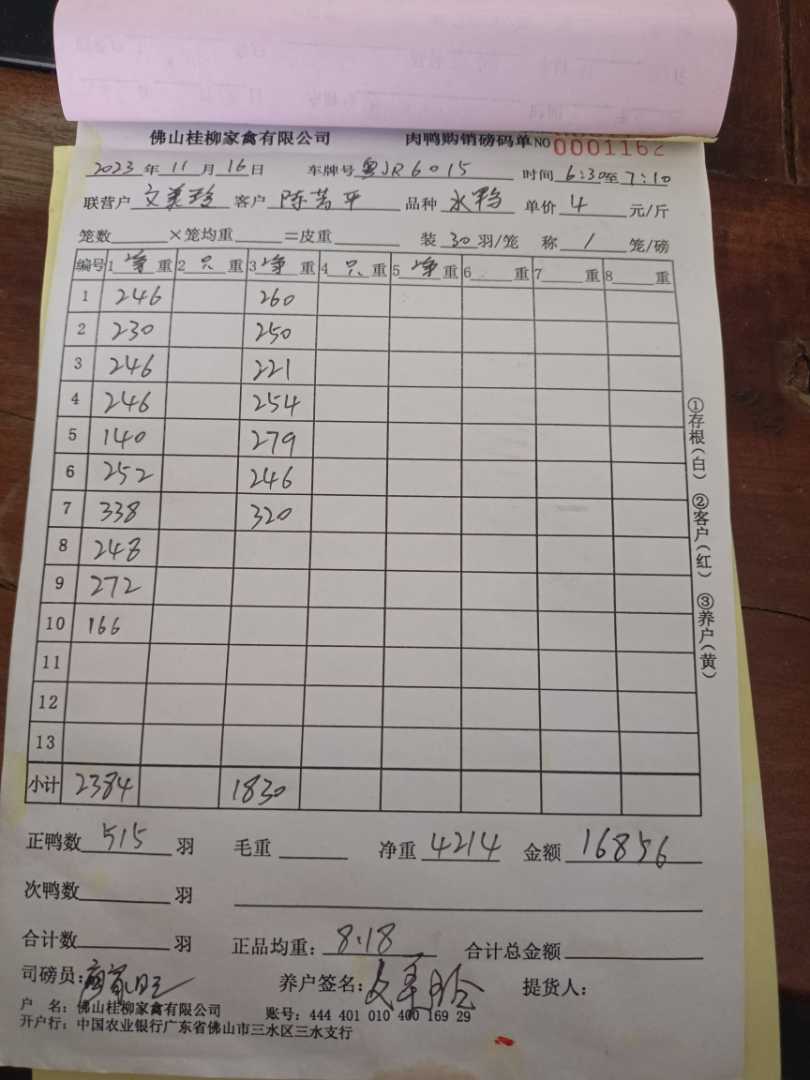 佛山桂柳家禽有限公司 肉鸭购销磅码单 NO 0001162
2023 年 11 月 16 日 车牌号 粤JR6015 时间 6:30至7:10
联营户 文美珍 客户 陈芳平 品种 水鸭 单价 4 元/斤
笼数 ×笼均重 =皮重 装 30 羽/笼 称 1 笼/磅
编号 1 净 重 2 只 重 3 净 重 4 只 重 5 净 重 6 重 7 重 8 重
1 246 260
2 230 250
3 246 221
4 246 254
5 140 279
6 252 246
7 338 320
8 248
9 272
10 166
11
12
13
小计 2384 1830
正鸭数 515 羽 毛重 净重 4214 金额 16856
次鸭数 羽
合计数 羽 正品均重: 8.18 合计总金额
司磅员: 养户签名: 文美珍 提货人:
户 名: 佛山桂柳家禽有限公司 账号: 444 401 010 400 169 29
开户行: 中国农业银行广东省佛山市三水区三水支行
①存根(白) ②客户(红) ③养户(黄)